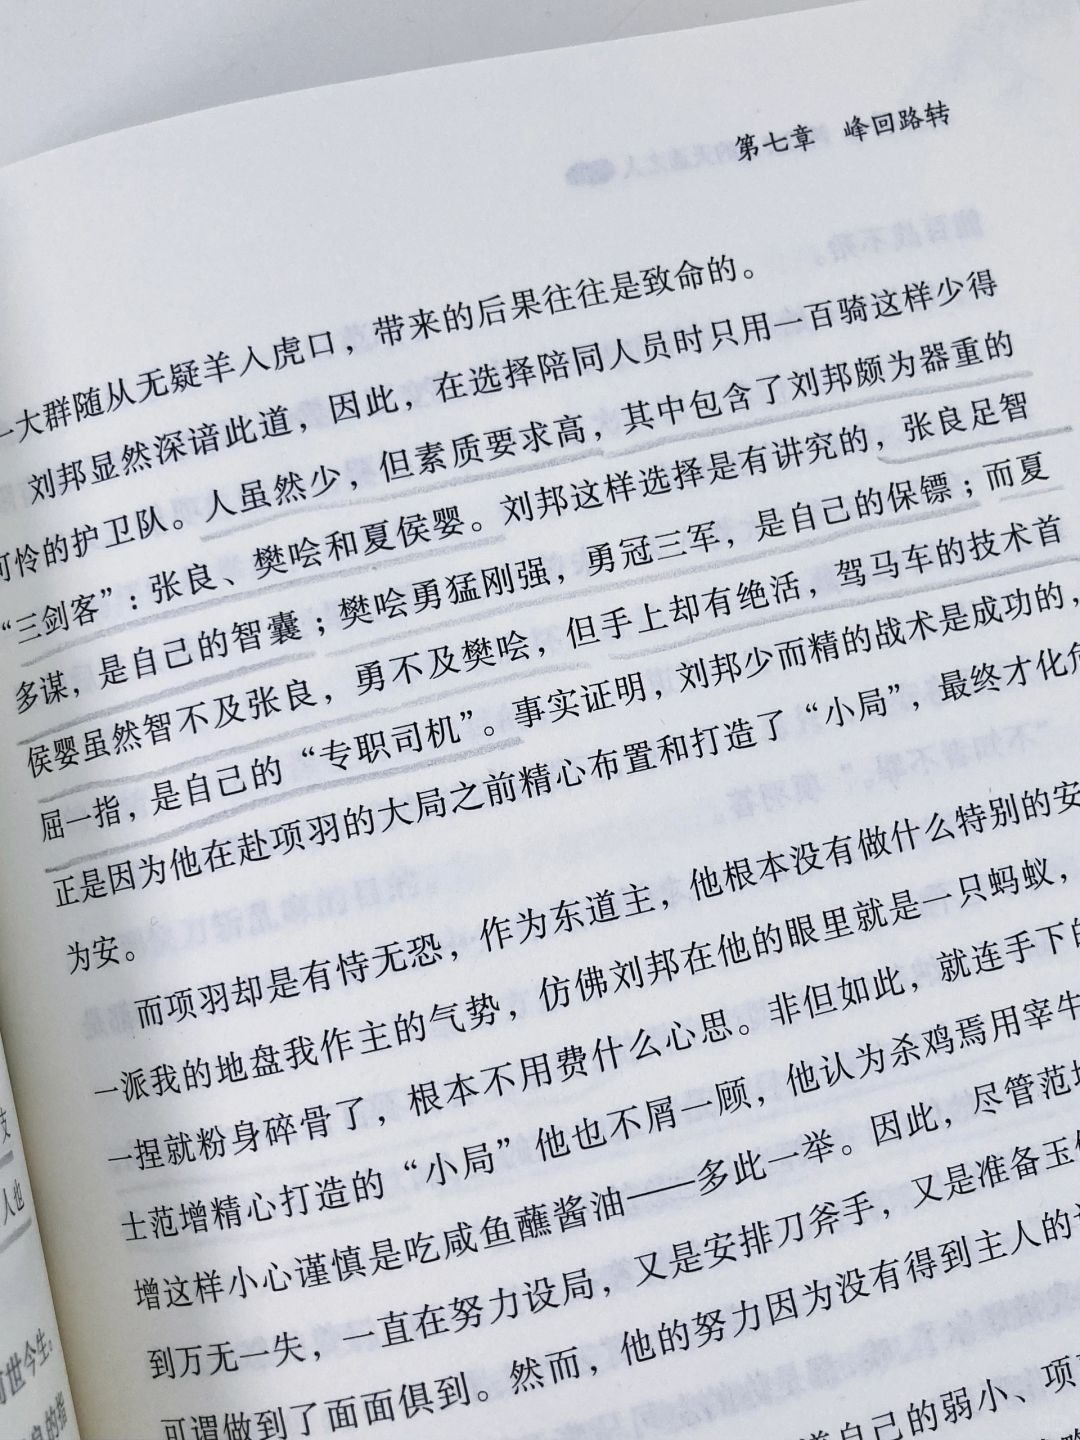 第七章 峰回路转
一大群随从无疑羊入虎口，带来的后果往往是致命的。
刘邦显然深谙此道，因此，在选择陪同人员时只用一百骑这样少得
可怜的护卫队。人虽然少，但素质要求高，其中包含了刘邦颇为器重的
“三剑客”：张良、樊哙和夏侯婴。刘邦这样选择是有讲究的，张良足智
多谋，是自己的智囊；樊哙勇猛刚强，勇冠三军，是自己的保镖；而夏
侯婴虽然智不及张良，勇不及樊哙，但手上却有绝活，驾马车的技术首
屈一指，是自己的“专职司机”。事实证明，刘邦少而精的战术是成功的，
正是因为他在赴项羽的大局之前精心布置和打造了“小局”，最终才化危
为安。
而项羽却是有恃无恐，作为东道主，他根本没有做什么特别的安
一派我的地盘我作主的气势，仿佛刘邦在他的眼里就是一只蚂蚁，
一捏就粉身碎骨了，根本不用费什么心思。非但如此，就连手下的
士范增精心打造的“小局”他也不屑一顾，他认为杀鸡焉用宰牛
增这样小心谨慎是吃咸鱼蘸酱油——多此一举。因此，尽管范增
到万无一失，一直在努力设局，又是安排刀斧手，又是准备玉
可谓做到了面面俱到。然而，他的努力因为没有得到主人的
道自己的弱小、项
支
人也
世今生。
的指